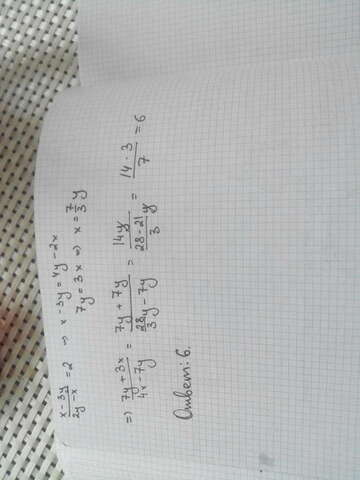 (x - 3y)/(2y - x) = 2 ⇒ x - 3y = 4y - 2x
7y = 3x ⇒ x = 7/3 y
⇒ (7y + 3x)/(4x - 7y) = (7y + 7y)/(28/3 y - 7y) = 14y/((28 - 21)/3 y) = (14 · 3)/7 = 6
Ответ: 6.